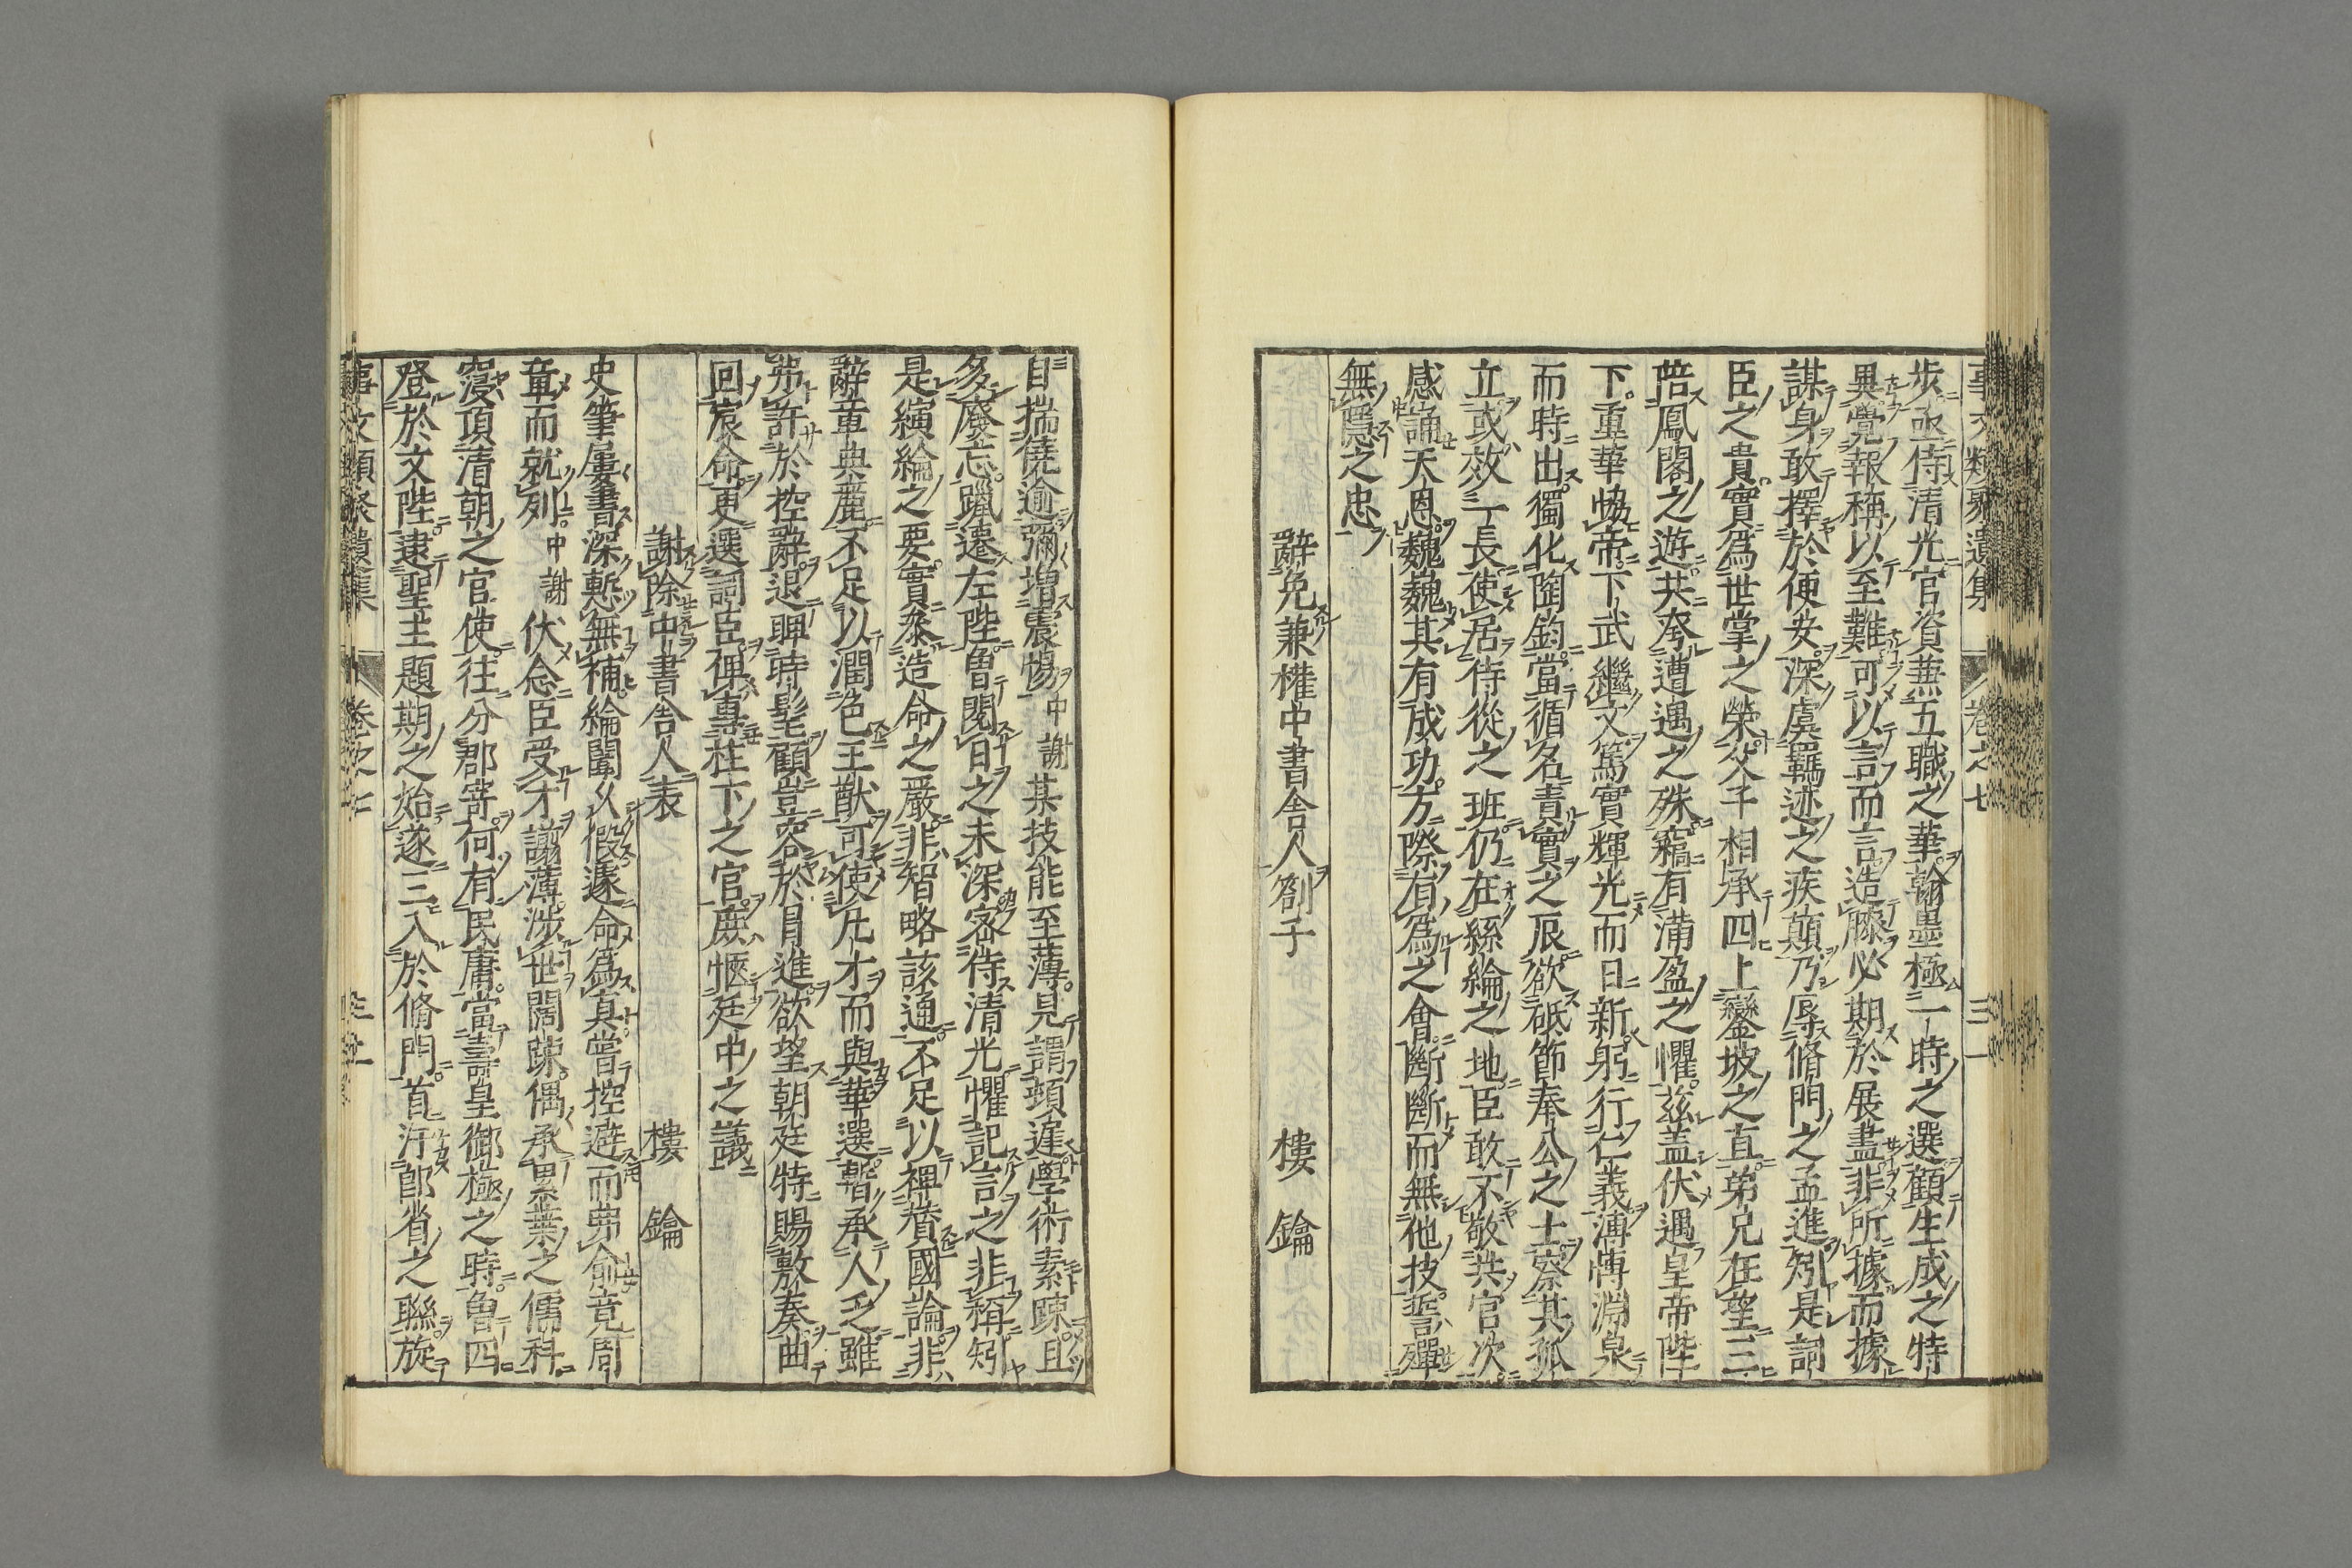 事文類聚遺集　卷之七　三一
步亟侍清光官資兼五職之華翰墨極一時之選顧生成之特
異覺報稱以至難可以言而言造膝必期於展盡非所據而據
謀身敢擇於便安深虞羈迹之疾顛乃辱脩門之孟進矧是詞
臣之貴實爲世掌之榮父子相承四上鑾坡之直弟兄在望三
陪鳳閣之遊共夸遭遇之殊竊有滿盈之懼茲盖伏遇皇帝陛
下重華恊帝下武繼文篤實輝光而日新躬行仁義溥博淵泉
而時出獨化陶鈞當循名責實之辰欲砥節奉公之士察其孤
立或效一長使居侍從之班仍在絲綸之地臣敢不敬共官次
感誦天恩巍巍其有成功方際有爲之會斷斷而無他技誓殫
無隱之忠
辭免兼權中書舎人劄子　樓　鑰
自揣僥逾彌增震惕中謝某技能至薄見謂頓遲學術素踈且
多廢忘躐遷左陛魯閱日之未深密侍清光懼記言之非稱矧
是演綸之要實叅造命之嚴非智略該通不足以禆賛國論非
辭章典麗不足以潤色王猷可使凡才而與華選暫承人乏雖
弗許於控辭退聊時髦顧豈容於冒進欲望朝廷特賜敷奏曲
回宸命更選詞臣俾專柱下之官庶愜廷中之議
謝除中書舎人表　樓　鑰
史筆屢書深慙無補綸闈乆假遽命爲真嘗控避而弗俞竟周
章而就列中謝伏念臣受才謭薄涉世闊踈偶承累葉之儒科
寖頂清朝之官使往分郡寄何有民庸當壽皇御極之時魯四
登於文陛逮聖主題期之始遂三入於脩門首汙郎省之聯旋
事文類聚遺集　卷之七